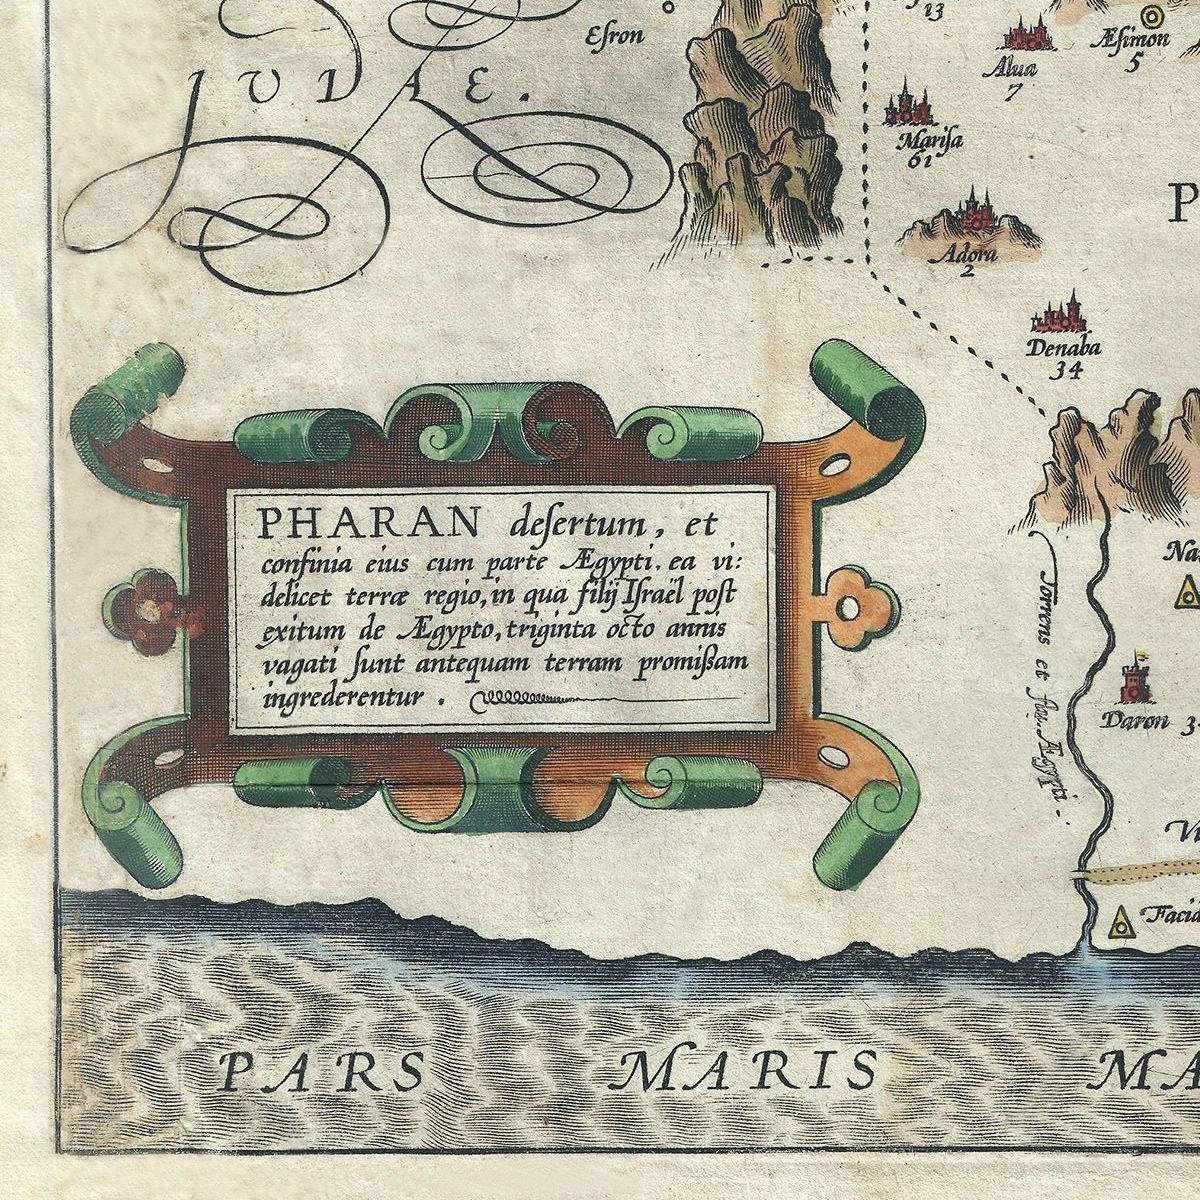 Eſron
13
Alua
7
Æſimon
5
IVDAE.
Mariſa
61
P
Adora
2
Denaba
34
PHARAN deſertum, et
confinia eius cum parte Ægypti. ea vi:
delicet terræ regio, in qua filij Iſraël poſt
exitum de Ægypto, triginta octo annis
vagati ſunt antequam terram promiſsam
ingrederentur.
Na
Torrens et flu. Ægypti.
Daron 3
Vi
Facid
PARS MARIS MA